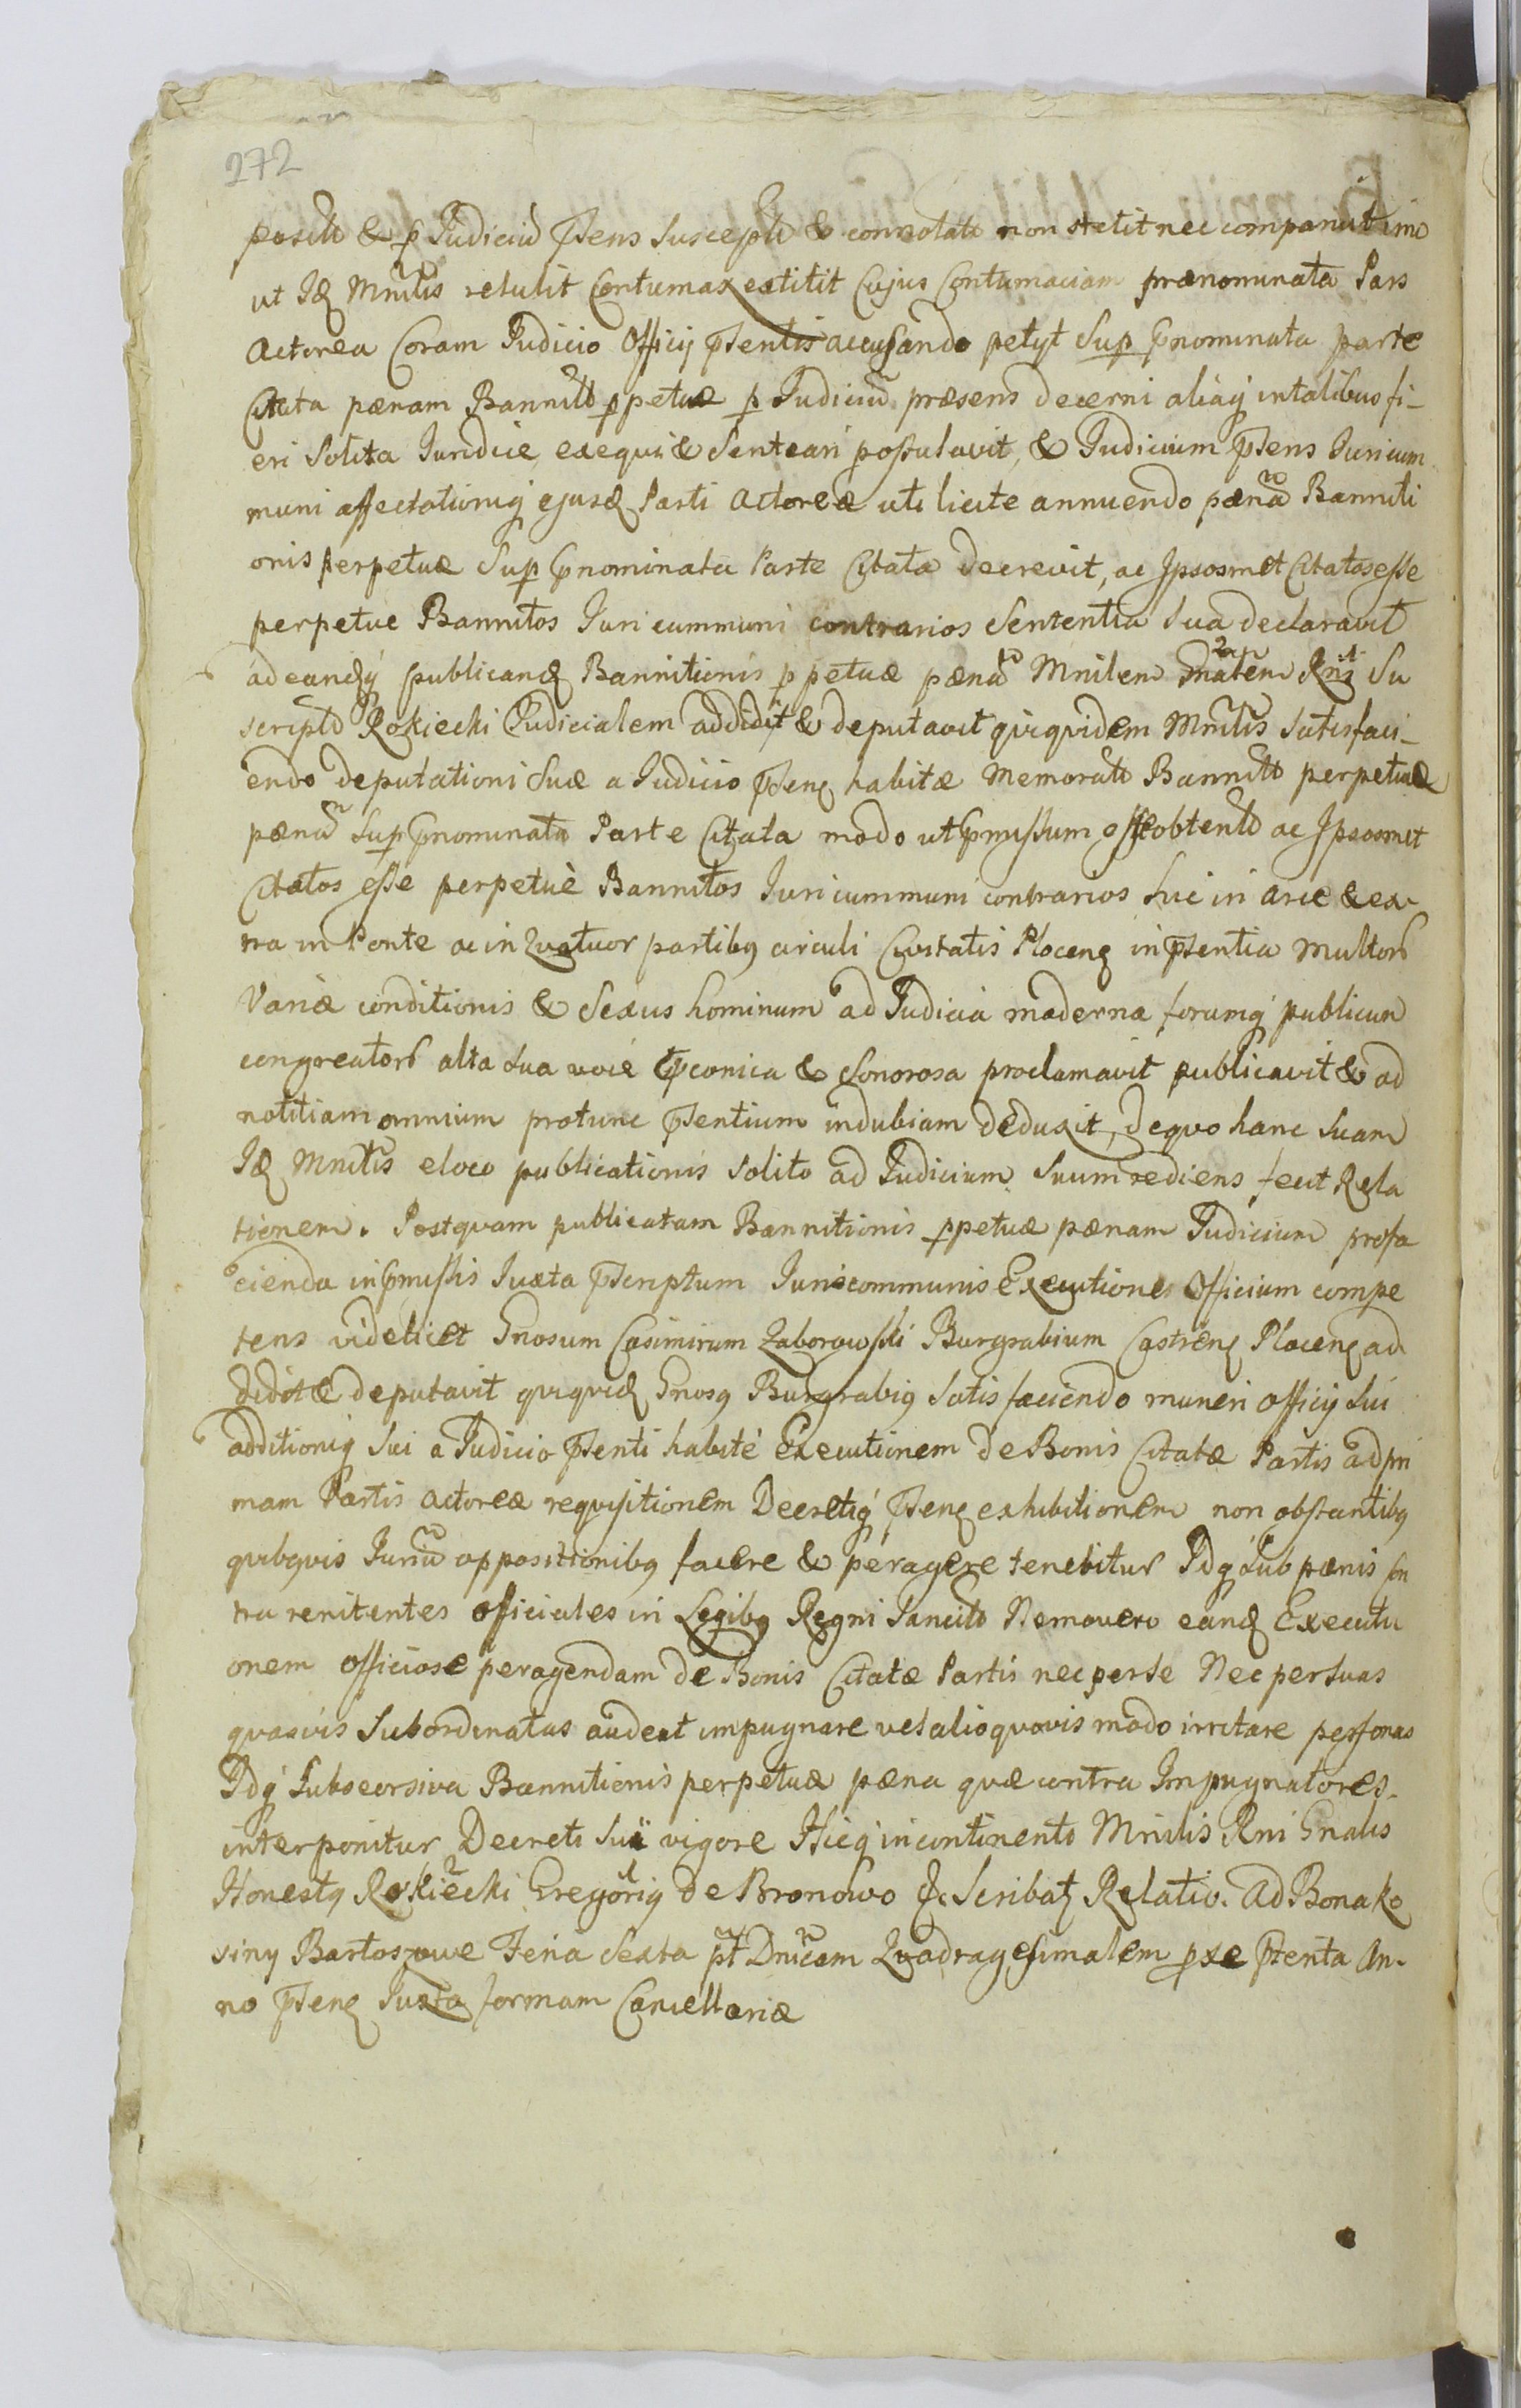 272
positi & p Judiciũ pñens suscepti & connotati non stetit nec comparuit imo
ut Idẽ Mnrlis retulit Contumax extitit Cujus Contumaciam prænominata Pars
Actorea Coram Judicio Officij pñentis accusando petyt Sup pnominata parte
Citata pænam Bannitõ ppetuæ p Judiciũ præsens decerni aliaq in talibus fi-
eri Solita Juridice exequi & Senteari postulavit, & Judicium pñens Juri cum
muni affectationiq ejusdẽ Parti Actoreæ uti licite annuendo pænã Banniti
onis perpetuæ Sup pnominata Parte Citata decrevit, ac Ipsosmet Citatos esse
perpetue Bannitos Juri cummuni contrarios Sententia Sua declaravit
ad eandẽq publicandẽ Bannitionis ppetuæ pænã Mnrlem Gñalem Rni Su
scriptõ Rokiecki Judicialem addidit & deputavit qui quidem Mnrlis satisfaci-
endo deputationi Suæ a Judicio pñenẽ habitæ Memorati Bannitõ perpetuæ
pænã Sup pnominata Parte Citata modo ut pmissum est obtentõ ac Ipsosmet
Citatos esse perpetuè Bannitos Juri cummuni contrarios hic in arce & ex-
tra in Ponte ac in Quatuor partibq circuli Civitatis Plocenẽ in pñentia multorũ
Variæ conditionis & Sexus hominum ad Judicia moderna forumq publicum
congreatorũ alta sua voce pconica & Sonorosa proclamavit publicavit & ad
notitiam omnium protunc pñentium indubiam deduxit, de quo hanc Suam
Idẽ Mnrlis e loco publicationis Solito ad Judicium Suum rediens fecit Rela
tionem. Postquam publicatam Bannitionis ppetuæ pænam Judicium pro fa
cienda in pmissis Juxta pscriptum Juris communis Executione Officium compe
tens videlicet Gnosum Casimirum Zaborowski Burgrabium Castrenẽ Plocenẽ ad
didit & deputavit qui quidẽ Gnosq Burgrabiq Satisfaciendo muneri Officij Sui
additioniq Sui a Judicio pñenti habite Executionem de Bonis Citatæ Partis ad pri
mam Partis Actoreæ requisitionem Decretiq pñenẽ exhibitionem non obstantibq
quibqvis Juriũ oppositionibq facere & peragere tenebitur Idq Sub pænis con
tra renitentes officiales in Legibq Regni Sancitõ Nemo vero eandẽ Executi
onem officiose peragendam de Bonis Citatæ Partis nec per se Nec per suas
quasvis Subordinatas audeat impugnare vel alio quovis modo irritare personas
Idq Sub seorsiva Bannitionis perpetuæ pæna quæ contra Impugnatores
interponitur Decreti Sui vigore Hicq in continenti Mnrlis Rni Gnalis
Honestq Rokiecki Gregoriq de Bronowo & Scribatẽ Relatio. Ad Bona Ko
siny Bartoszowe Feria Sexta pt Dnicam Quadragesimalem pxe pterita An-
no pñenẽ Juxta formam Cancellariæ